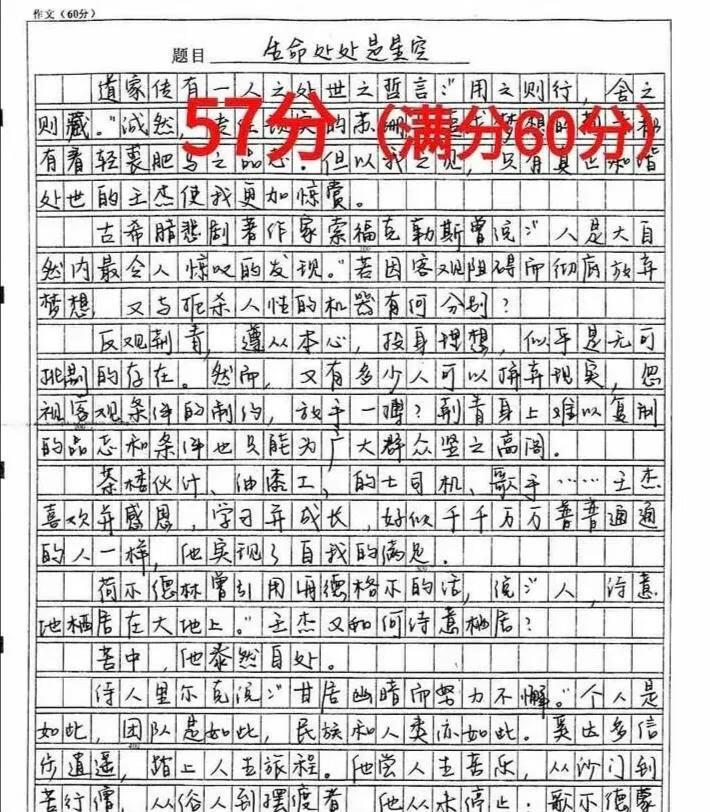 作文(60分)
题目 生命处处是星空
道家传有一人之处世之哲言：“用之则行，舍之
则藏。”诚然，
57分（满分60分）
有着轻裘肥马之品志。但以我之见，只有真正和谐
处世的王杰使我更加惊赏。
古希腊悲剧著作家索福克勒斯曾说：“人是大自
然内最令人惊叹的发现。”若因客观阻碍而彻底放弃
梦想 又与扼杀人性的机器有何分别？
反观荆青，遵从本心，投身理想，似乎是无可
挑剔的存在。然而，又有多少人可以摒弃现实，忽
视客观条件的制约，放手一搏？荆青身上难以复制
的品志和条件也只能为广大群众坚之高阁。
茶楼伙计、油漆工，的士司机、歌手……王杰
喜欢并感恩，学习并成长，好似千千万万普普通通
的人一样，他实现了自我的满足．
荷尔德林曾引用海德格尔的话，说：“人，诗意
地栖居在大地上。”王杰又如何诗意栖居？
苦中，他泰然自处。
诗人里尔克说：“甘居幽暗而努力不懈。”个人是
如此，团队是如此，民族和人类亦如此．奚达多信
步逍遥，踏上人生旅程。他尝人生苦乐，从沙门到
苦行僧，从俗人到摆渡者，他从未停止．歌尔德蒙